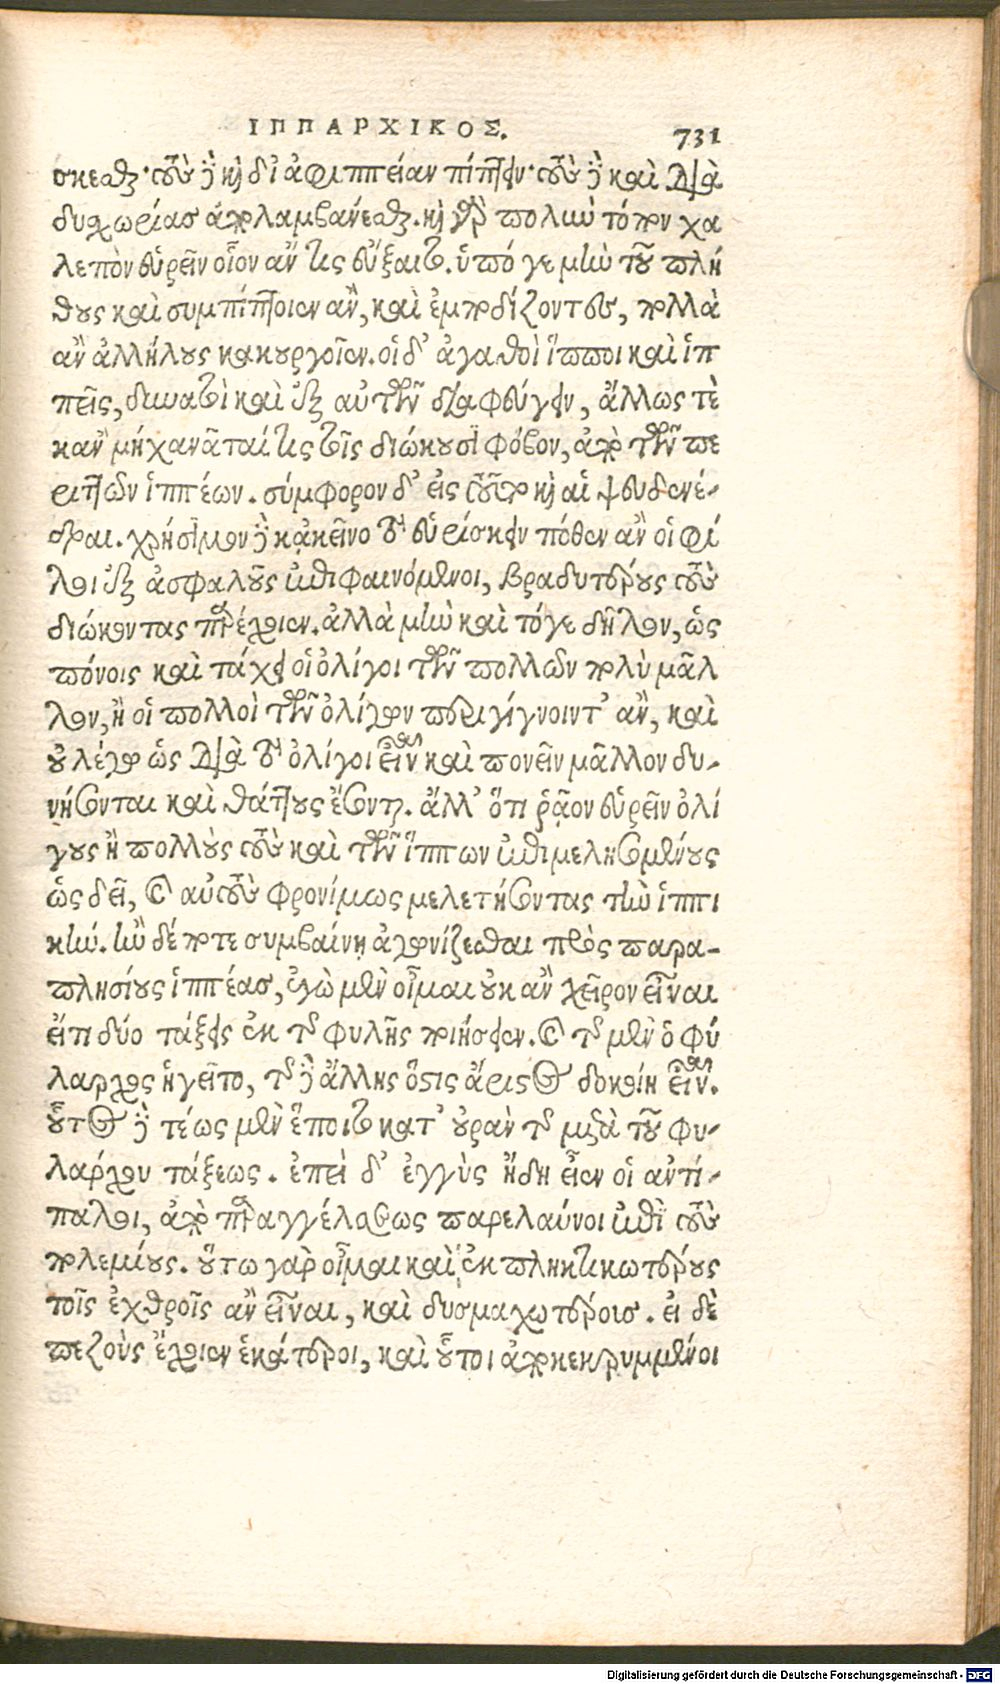 ΙΠΠΑΡΧΙΚΟΣ. 731
σκεσθαι· τοὺς δὲ καὶ δι’ ἀφιππείαν πίπτειν· τοὺς δὲ καὶ διὰ
δυσχωρίας ἀπολαμβάνεσθαι. καὶ γὰρ πολὺν τόπον χα
λεπὸν εὑρεῖν οἷον ἄν τις εὔξαιτο. ὑπό γε μὴν τοῦ πλή
θους καὶ συμπίπτοιεν ἂν, καὶ ἐμποδίζοντες, πολλὰ
ἂν ἀλλήλους κακουργοῖεν. οἱ δ’ ἀγαθοὶ ἵπποι καὶ ἱπ
πεῖς, δυνατοὶ καὶ ἐξ αὐτῶν διαφεύγειν, ἄλλως τὲ
κἂν μηχανᾶταί τις τοῖς διώκουσι φόβον, ἀπὸ τῶν πε
ριττῶν ἱππέων. σύμφορον δ’ εἰς τοῦτο καὶ αἱ ψευδενέ-
δραι. χρήσιμον δὲ κἀκεῖνο τὸ εὑρίσκειν πόθεν ἂν οἱ φί
λοι ἐξ ἀσφαλοῦς ἐπιφαινόμενοι, βραδυτέρους τοὺς
διώκοντας παρέχοιεν. ἀλλὰ μὴν καὶ τόγε δῆλον, ὡς
πόνοις καὶ τάχει οἱ ὀλίγοι τῶν πολλῶν πολὺ μᾶλ
λον, ἢ οἱ πολλοὶ τῶν ὀλίγων περιγίγνοιντ’ ἂν, καὶ
οὐ λέγω ὡς διὰ τὸ ὀλίγοι εἶναι καὶ πονεῖν μᾶλλον δυ-
νήσονται καὶ θάττους ἔσονται. ἀλλ’ ὅτι ῥᾷον εὑρεῖν ὀλί
γους ἢ πολλοὺς τοὺς καὶ τῶν ἵππων ἐπιμελησομένους
ὡς δεῖ, καὶ αὐτοὺς φρονίμως μελετήσοντας τὴν ἱππι
κήν. ἢν δέ ποτε συμβαίνῃ ἀγωνίζεσθαι πρὸς παρα-
πλησίους ἱππέας, ἐγὼ μὲν οἶμαι οὐκ ἂν χεῖρον εἶναι
εἴ τι δύο τάξεις ἐκ τῆς φυλῆς ποιήσειεν. καὶ τῆς μὲν ὁ φύ
λαρχος ἡγεῖτο, τῆς δὲ ἄλλης ὅστις ἄριστος δοκοίη εἶναι.
οὗτος δὲ τέως μὲν ἕποιτο κατ’ οὐρὰν τῆς μετὰ τοῦ φυ-
λάρχου τάξεως. ἐπεὶ δ’ ἐγγὺς ἤδη εἶεν οἱ αντί-
παλοι, ἀπὸ παραγγέλσεως παρελαύνοι ἐπὶ τοὺς
πολεμίους. οὕτω γὰρ οἶμαι καὶ ἐκπληκτικωτέρους
τοῖς ἐχθροῖς ἂν εἶναι, καὶ δυσμαχωτέροις. εἰ δὲ
πεζοὺς ἔχοιεν ἑκάτεροι, καὶ οὗτοι ἀποκεκρυμμένοι
Digitalisierung gefördert durch die Deutsche Forschungsgemeinschaft - DFG